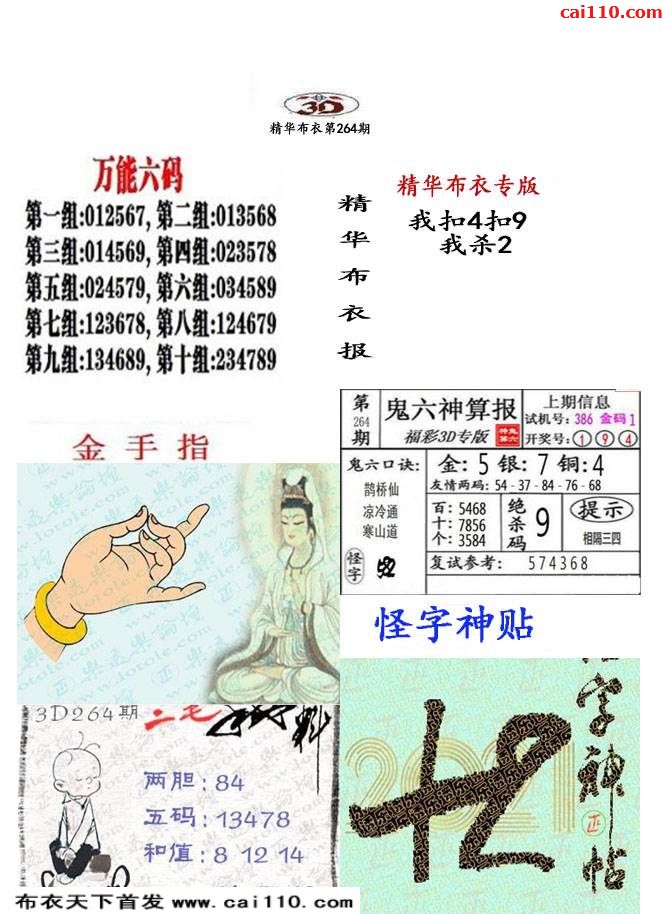 cai110.com
3D
精华布衣第264期
万能六码
第一组:012567, 第二组:013568
第三组:014569, 第四组:023578
第五组:024579, 第六组:034589
第七组:123678, 第八组:124679
第九组:134689, 第十组:234789
精华布衣报
精华布衣专版
我扣4扣9
我杀2
金手指
第264期
鬼六神算报
福彩3D专版
上期信息
试机号: 386 金码1
开奖号: 1 9 4
鬼六口诀:
鹊桥仙
凉冷通
寒山道
怪字
金: 5 银: 7 铜: 4
友情两码: 54-37-84-76-68
百: 5468
十: 7856
个: 3584
绝杀码 9
提示
相隔三四
复试参考: 574368
怪字神贴
3D264期
两胆: 84
五码: 13478
和值: 8 12 14
2021
字神帖
布衣天下首发 www.cai110.com